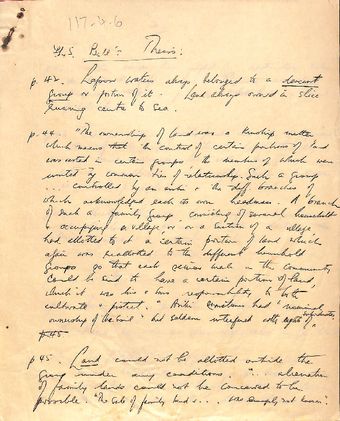 117.5.6
F.S. Bell's Thesis.
p. 42. Lagoon waters always belonged to a descent
group or portion of it. Land always owned in slice
running centre to sea.
p. 44. "The ownership of land was a kinship matter
which means that the control of certain portions of land
was vested in certain groups the members of which were
united by common ties of relationship. Such a group
... controlled by an & the diff branches of
which acknowledged each its own headman. A branch
of such a family group, consisting of several households
& occupying a village, or a section of a village,
had allotted to it a certain portion of land which
again was reallotted to the different household
groups so that each person in the community
could be said to have a certain portion of land,
which it was his & hers responsibility to both
cultivate & protect." "Ariki sometimes had "nominal
ownership of the land" but seldom interfered with rights of
p 45
p 45. Land could not be allotted outside the
group under any conditions. "... alienation
of family lands could not be conceived to be
possible. "The sale of family land ... was simply not known".